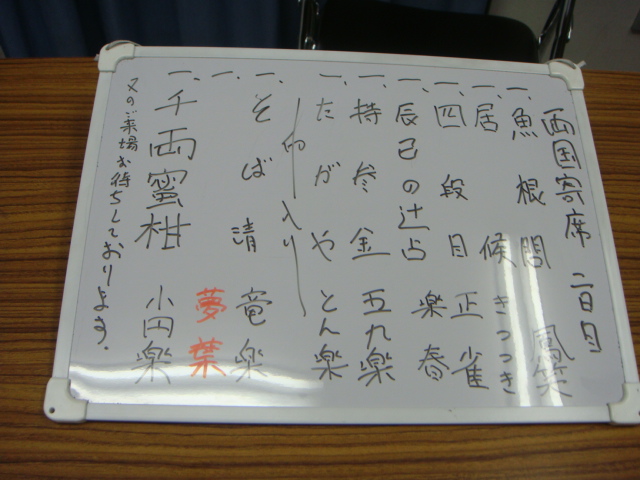 両国寄席 二日目
一、魚根問 鳳笑
一、居候 きつつき
一、四段目 正雀
一、辰巳の辻占 楽春
一、持参金 五九楽
一、たがや とん楽
仲入り
一、そば清 竜楽
一、 夢葉
一、千両蜜柑 小円楽
又のご来場お待ちしております.